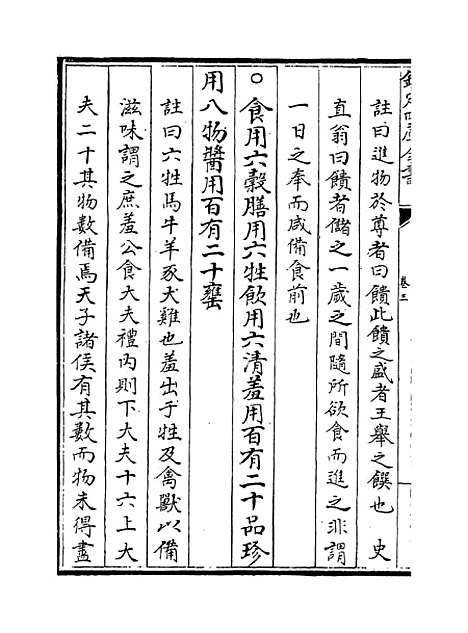 欽定四庫全書
卷三
註曰進物於尊者曰饋此饋之盛者王舉之饌也 史
直翁曰饋者儲之一歲之間隨所欲食而進之非謂
一日之奉而咸備食前也
○食用六穀膳用六牲飲用六清羞用百有二十品珍
用八物醬用百有二十罋
註曰六牲馬牛羊豕犬雞也羞出于牲及禽獸以備
滋味謂之庶羞公食大夫禮內則下大夫十六上大
夫二十其物數備焉天子諸侯有其數而物未得盡